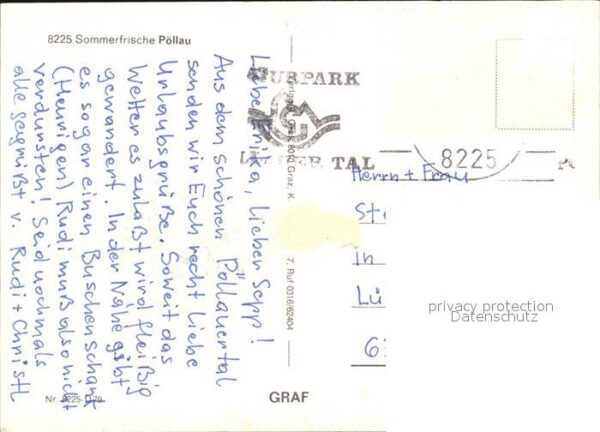 8225 Sommerfrische Pöllau
Liebe Erika, lieber Sepp!
Aus dem schönen Pöllauertal
senden wir Euch recht liebe
Urlaubsgrüße. Soweit das
Wetter es zuläßt wird fleißig
gewandert. In der Nähe gibt
es sogar einen Buschenschank
(Heurigen) Rudi muß also nicht
verdursten! Seid nochmals
alle gegrüßt v. Rudi + Christl
Nr. 8225-D79
Graz, K
7, Ruf 0316/62404
GRAF
URPARK
ER TAL
8225
Herrn + Frau
St
In
Lü
6
privacy protection
Datenschutz